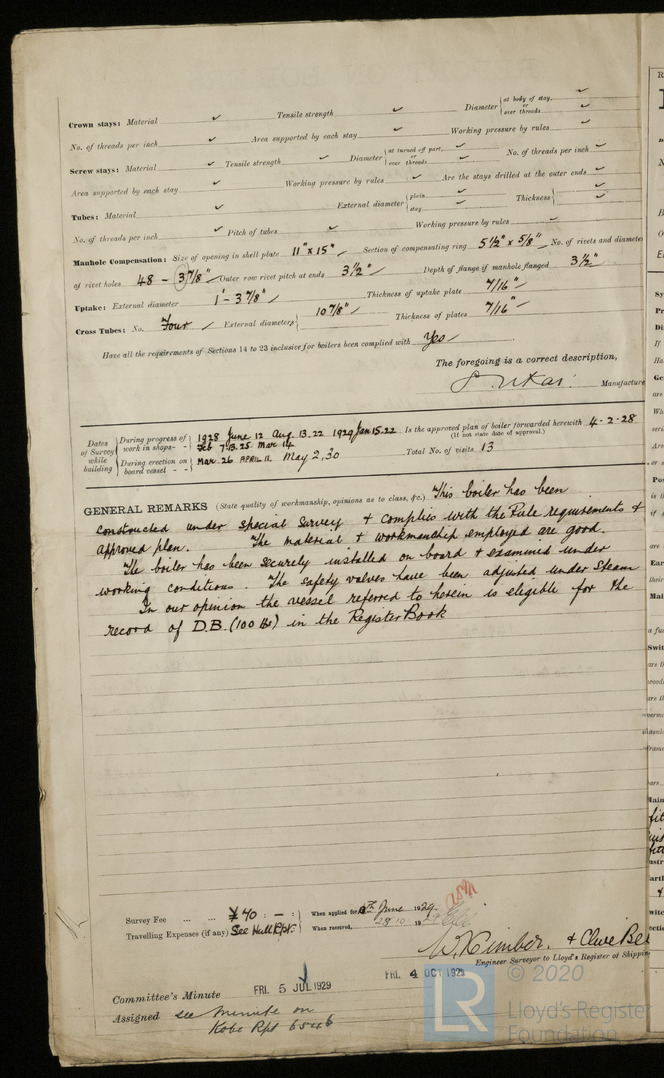 Crown stays: Material ✓ Tensile strength ✓ Diameter {at body of stay, ✓ or over threads ✓
No. of threads per inch ✓ Area supported by each stay ✓ Working pressure by rules ✓
Screw stays: Material ✓ Tensile strength ✓ Diameter {at turned off part, ✓ or over threads ✓ No. of threads per inch ✓
Area supported by each stay ✓ Working pressure by rules ✓ Are the stays drilled at the outer ends ✓
Tubes: Material ✓ External diameter {plain ✓ stay ✓ Thickness { ✓
No. of threads per inch ✓ Pitch of tubes ✓ Working pressure by rules ✓
Manhole Compensation: Size of opening in shell plate 11" x 15" Section of compensating ring 5 1/2" x 5/8" No. of rivets and diameter
of rivet holes 48 - 3 7/8" Outer row rivet pitch at ends 3 1/2" Depth of flange if manhole flanged 3 1/2"
Uptake: External diameter 1' - 3 7/8" Thickness of uptake plate 7/16"
Cross Tubes: No. Four External diameters} 10 7/8" Thickness of plates 7/16"
Have all the requirements of Sections 14 to 23 inclusive for boilers been complied with Yes
The foregoing is a correct description,
Manufacture
Dates of Survey while building
During progress of work in shops - - 1928 June 12 Aug 13. 22 1929 Jan 15. 22 Feb 7. 13. 25 Mar 14
During erection on board vessel - - Mar. 26 APRIL 11. May 2, 30
Is the approved plan of boiler forwarded herewith 4-2-28
(If not state date of approval.)
Total No. of visits 13
GENERAL REMARKS (State quality of workmanship, opinions as to class, &c.) This boiler has been
constructed under special survey & complies with the Rule requirements &
approved plan. The material & workmanship employed are good.
The boiler has been securely installed on board & examined under
working conditions. The safety valves have been adjusted under steam
In our opinion the vessel referred to herein is eligible for the
record of D.B. (100 lbs) in the Register Book
Survey Fee ... ... ¥ 40 : - : When applied for, June 1929.
Travelling Expenses (if any) See Hull Rpt. When received, 28.10 19
W. Kimber. & Clive
Engineer Surveyor to Lloyd's Register of Shipping
Committee's Minute FRI. 5 JUL 1929 FRI. 4 OCT 1929
Assigned see minute on
Kobe Rpt 6546
© 2020
LR
Lloyd's Register
Foundation